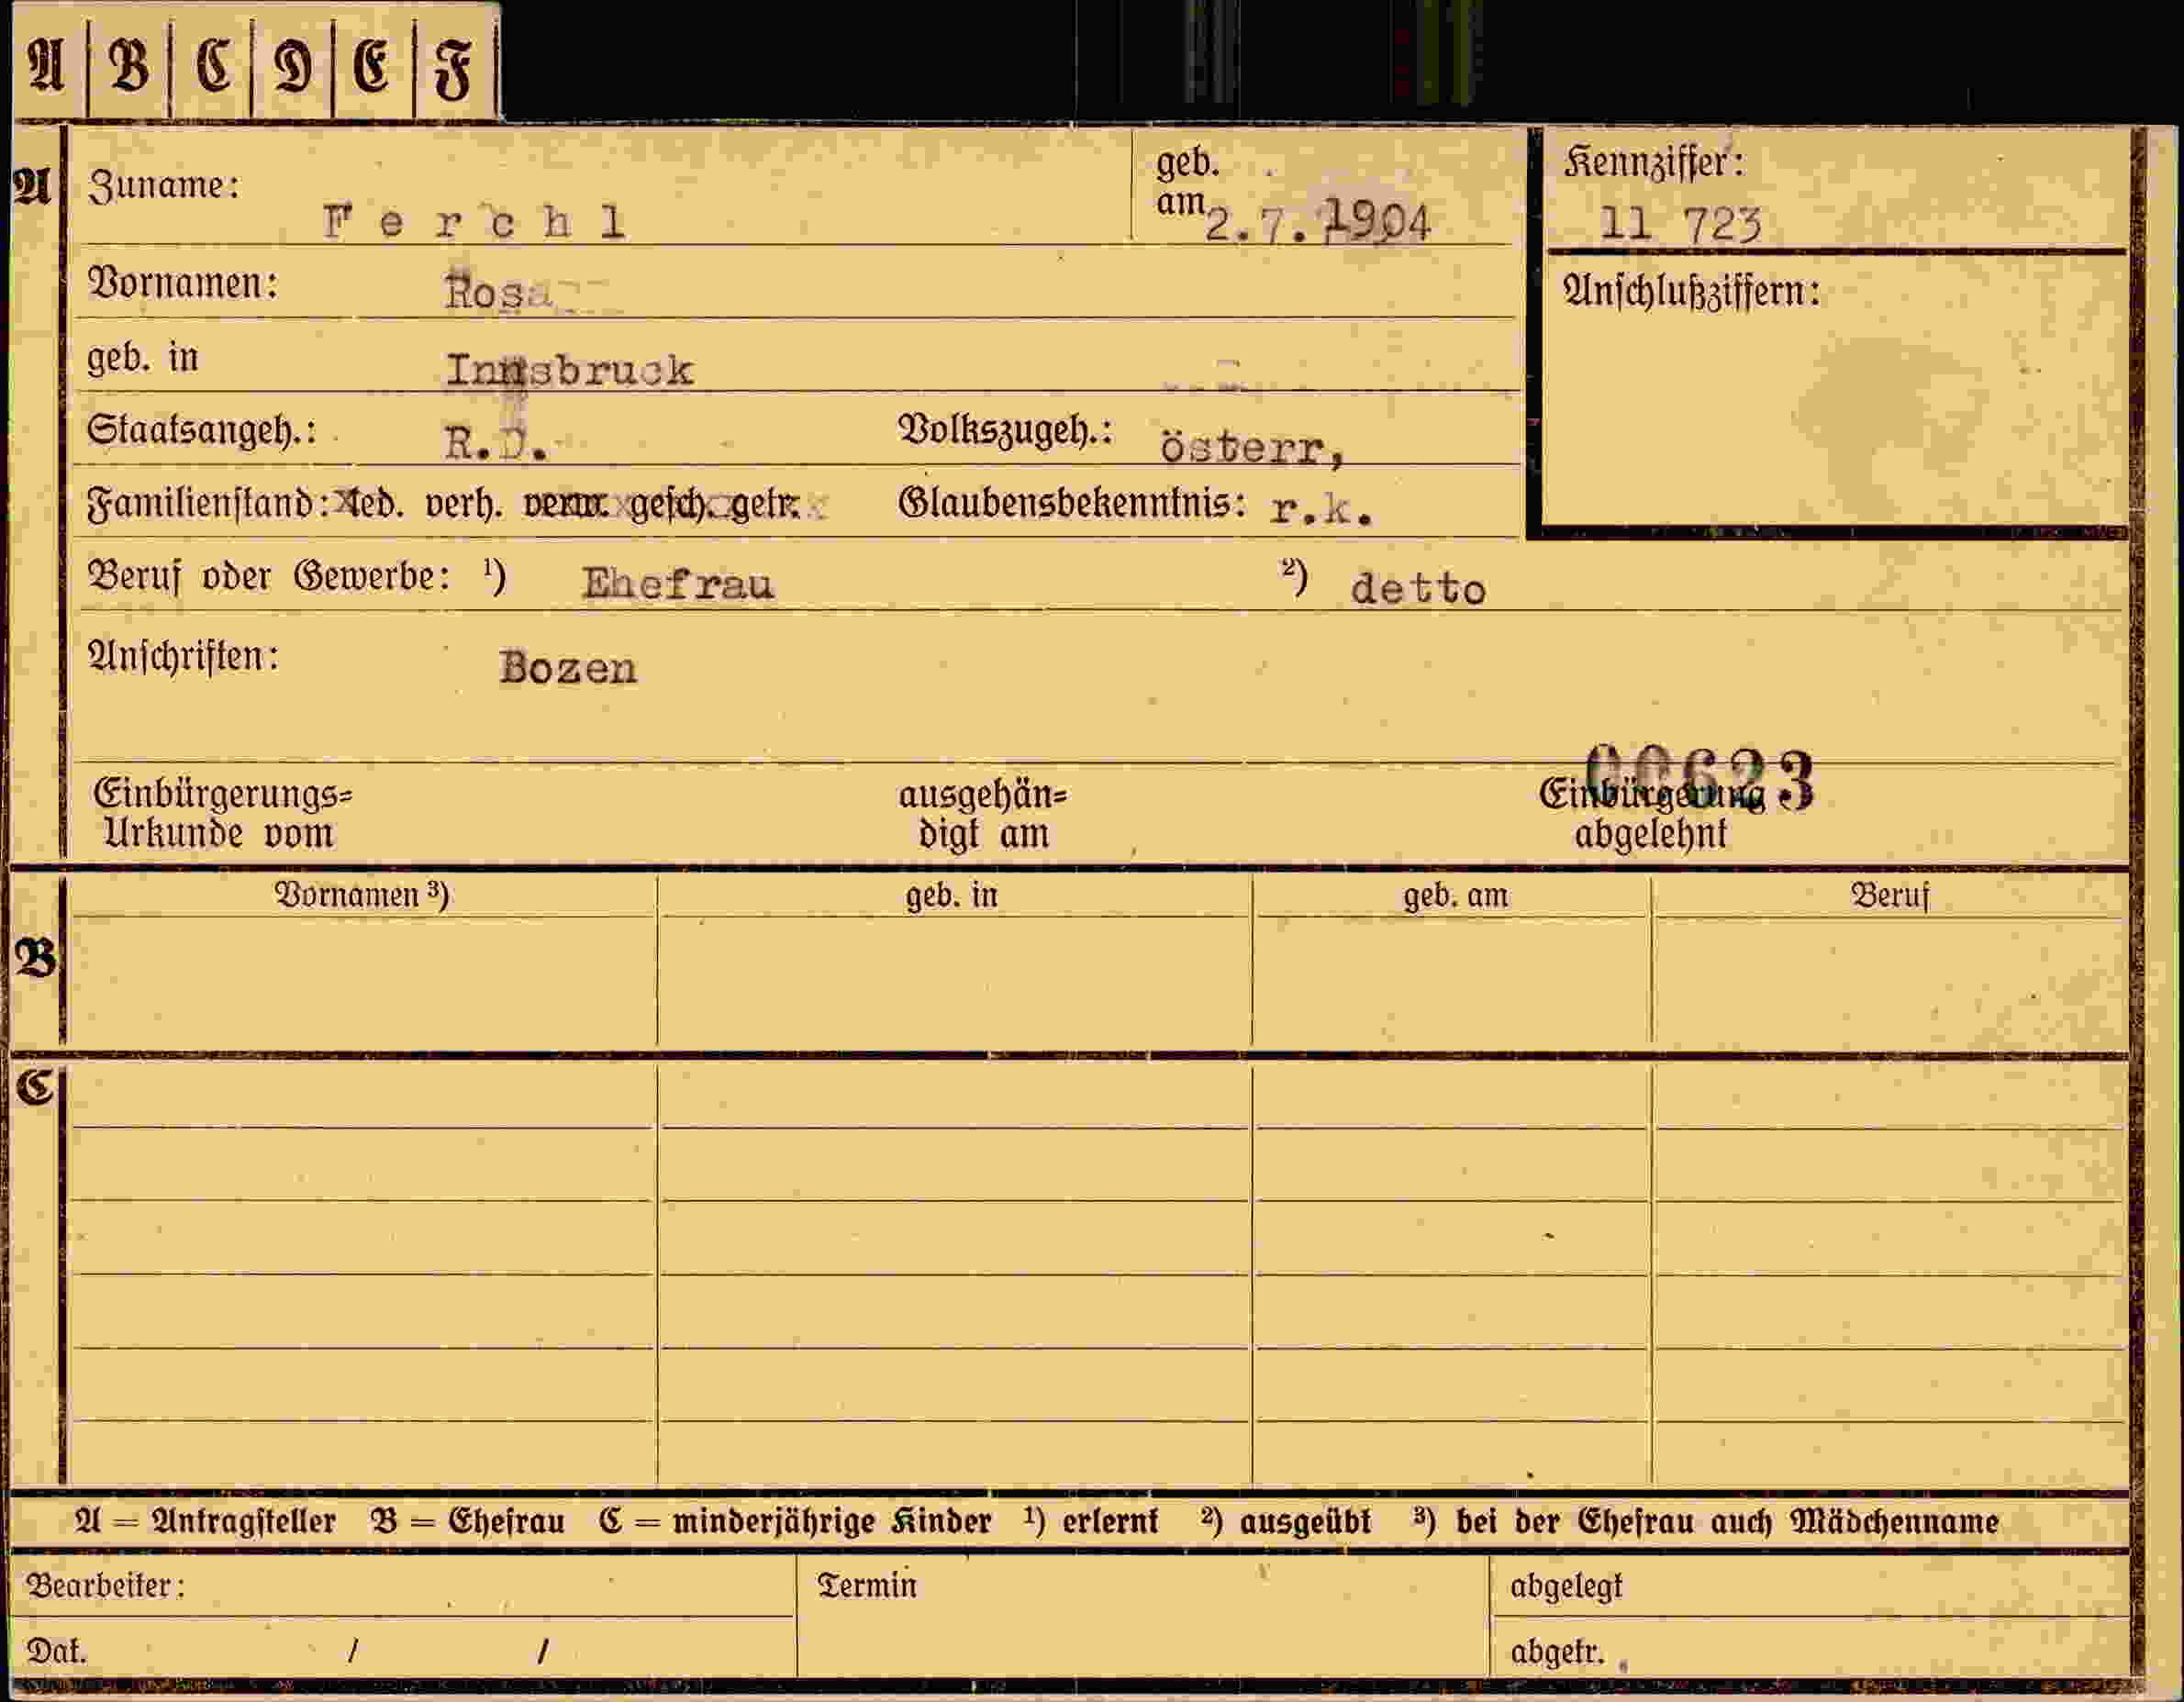 A B C D E F
A Zuname: Ferchl geb. am 2.7.1904 Kennziffer: 11 723
Vornamen: Rosa Anschlußziffern:
geb. in Innsbruck
Staatsangeh.: R.D. Volkszugeh.: österr,
Familienstand: led. verh. verw. gesch. getr. Glaubensbekenntnis: r.k.
Beruf oder Gewerbe: ¹) Ehefrau ²) detto
Anschriften: Bozen
00623
Einbürgerungs= ausgehän= Einbürgerung
Urkunde vom digt am abgelehnt
Vornamen ³) geb. in geb. am Beruf
B
C
A = Antragsteller B = Ehefrau C = minderjährige Kinder ¹) erlernt ²) ausgeübt ³) bei der Ehefrau auch Mädchenname
Bearbeiter: Termin abgelegt
Dat. / / abgetr.